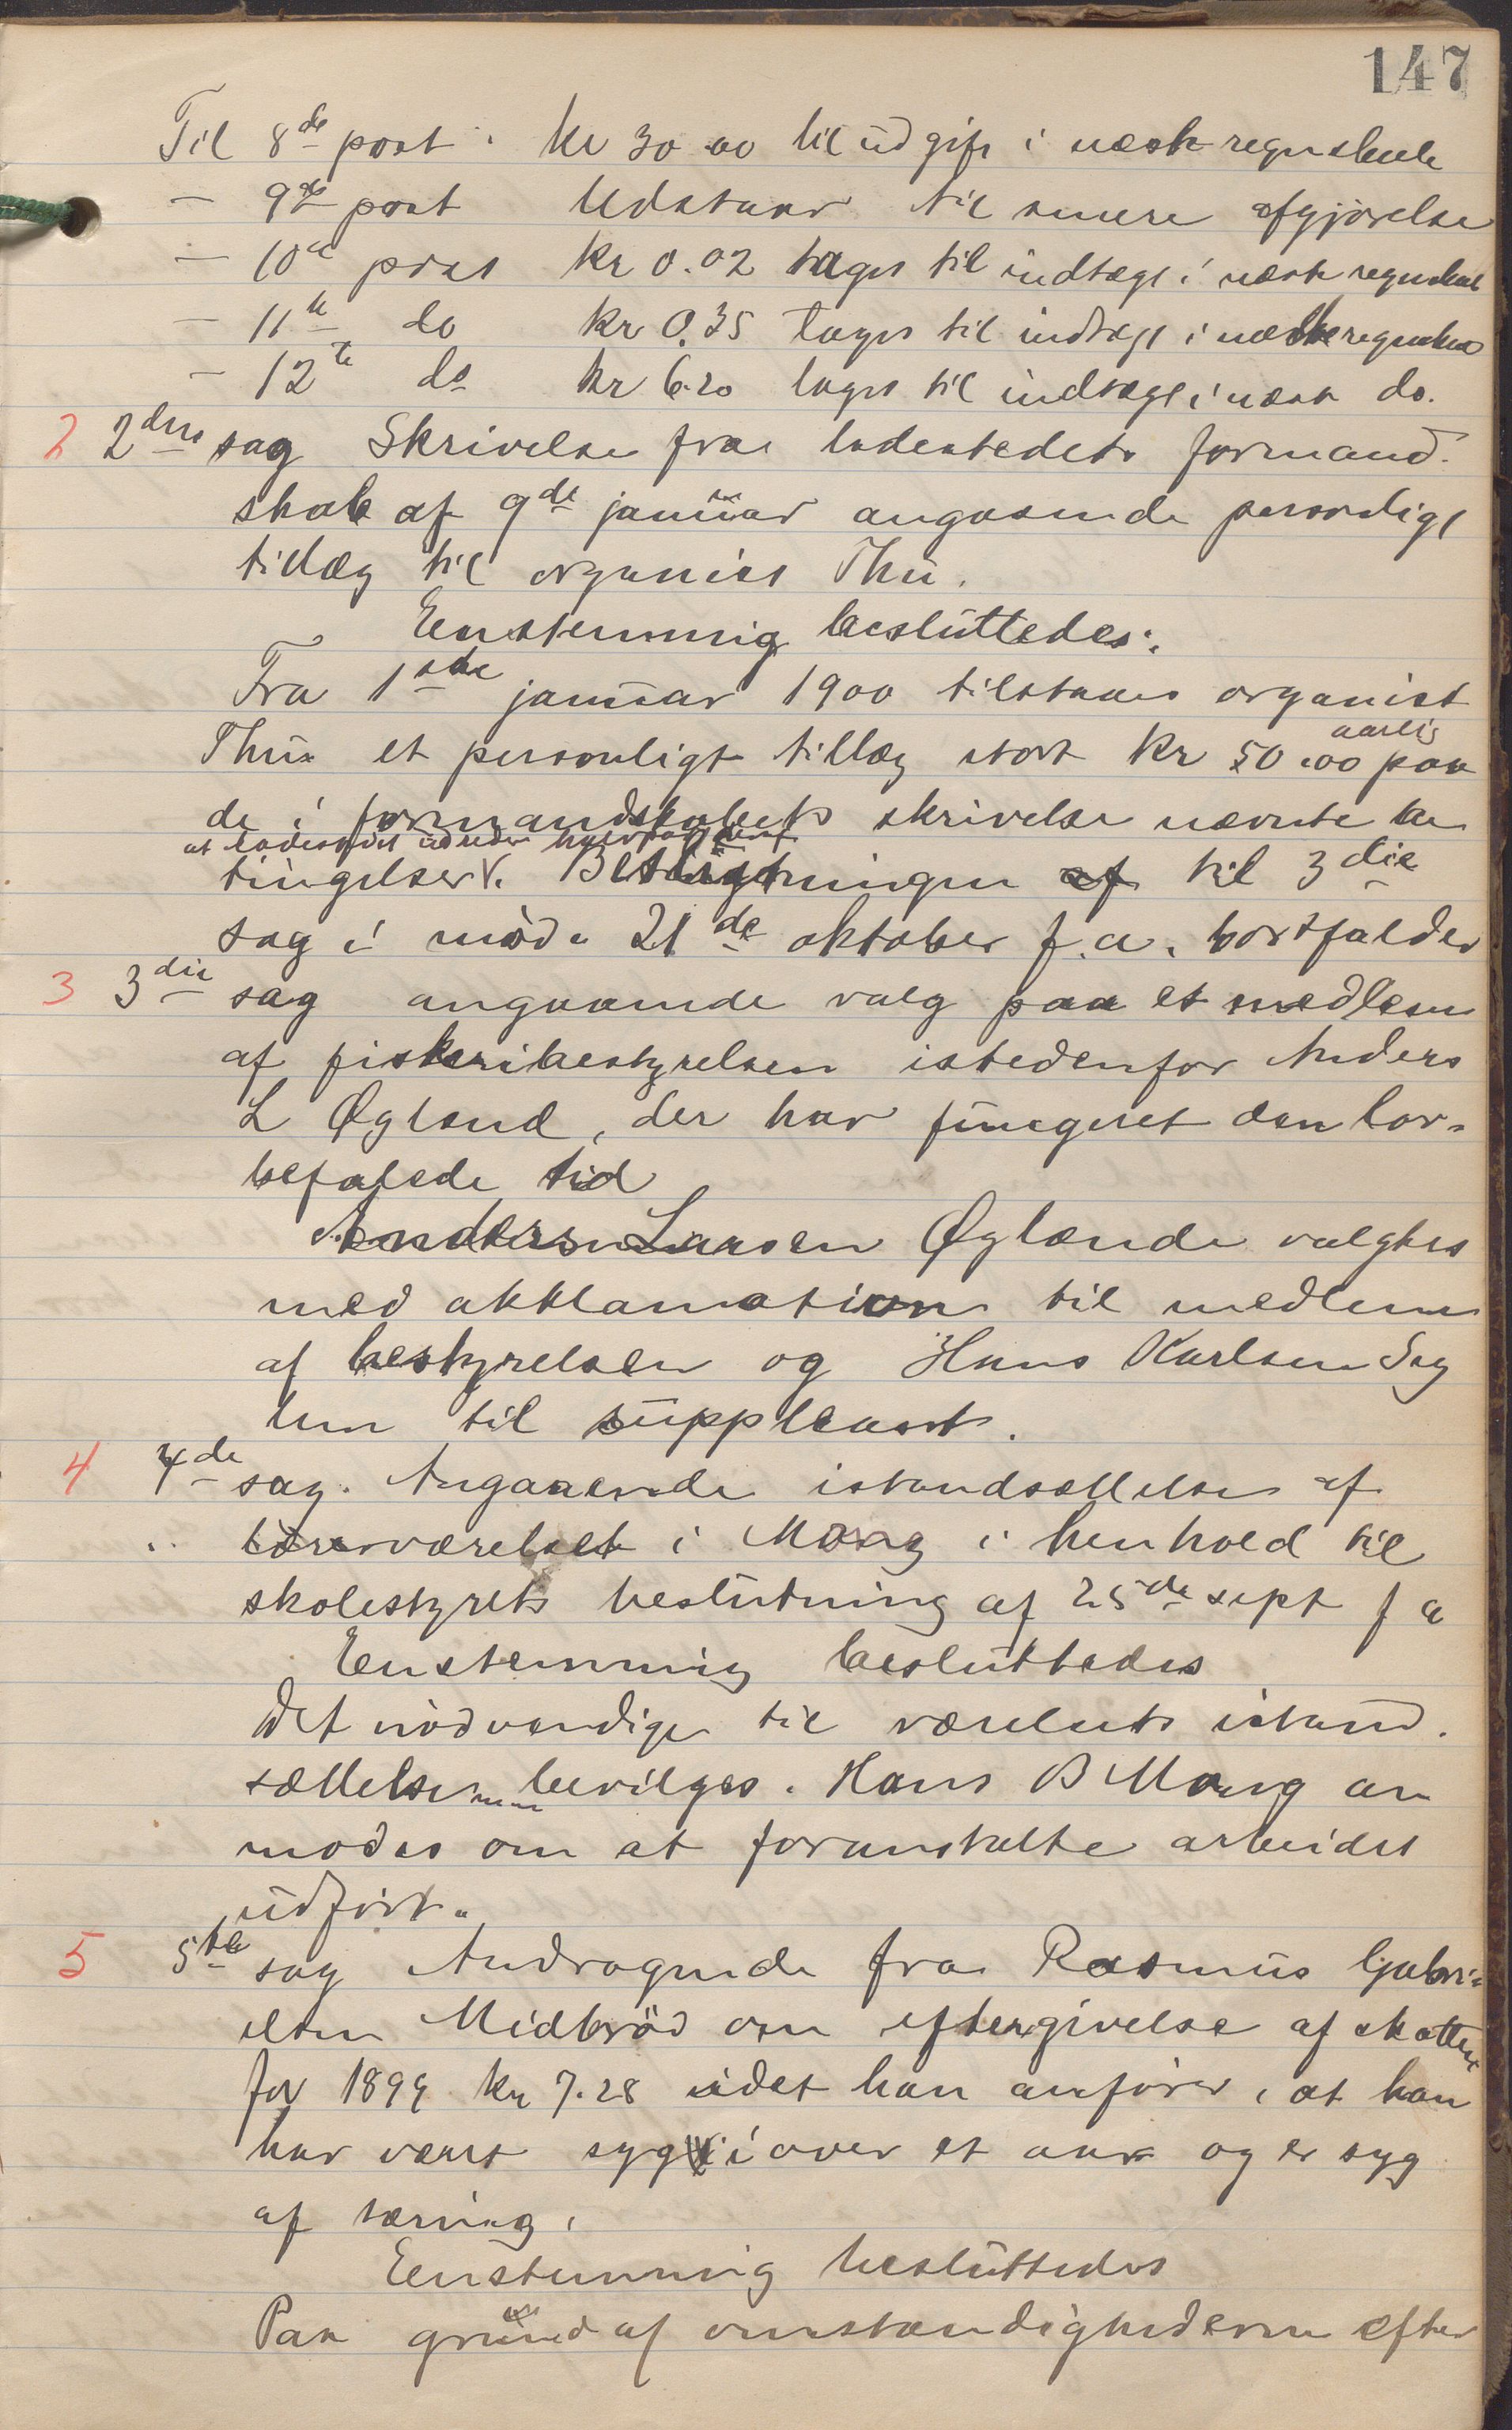 147
Til 8de post. kr 30.00 til udgift i næste regnskab
— 9de post Udstaar til senere afgjørelse
— 10de post kr 0.02 tages til indtægt i næste regnskab
— 11te do kr 0.35 tages til indtægt i næste regnskab
— 12te do kr 6.20 tages til indtægt i næste do.
2 2den sag Skrivelse fra ladestedets formand-
skab af 9de januar angaaende personligt
tillæg til organist Thu.
Enstemmig besluttedes:
Fra 1ste januar 1900 tilstaaes organist
aarlig
Thu et personligt tillæg stort kr 50.00 paa
de i formandskabets skrivelse nævnte be
at ladestedet udreder halvparten
tingelser. Beslutningen af til 3die
sag i møde 21de oktober f.a. bortfalder
3 3die sag angaaende valg paa et medlem
af fiskeribestyrelsen istedenfor Anders
L Øgland, der har fungeret den lov-
befalede tid
Anders Larsen Øglænde valgtes
med akklamation til medlem
af bestyrelsen og Hans Karlsen Seg
lem til suppleant.
4 4de sag. Angaaende istandsættelse af
læreværelset i Mong i henhold til
skolestyrets beslutning af 25de sept f a
Enstemmig besluttedes
Det nødvendige til værelsets istand-
sættelse bevilges. Hans B Mong an
modes om at foranstalte arbeidet
udført.
5 5te sag Andragende fra Rasmus Gjabri-
elsen Midbrød om eftergivelse af skatten
for 1899 kr 7.28 idet han anfører, at han
har været syg i over et aar og er syg
af tæring.
Enstemmig besluttedes
Paa grund af omstændighederne efter